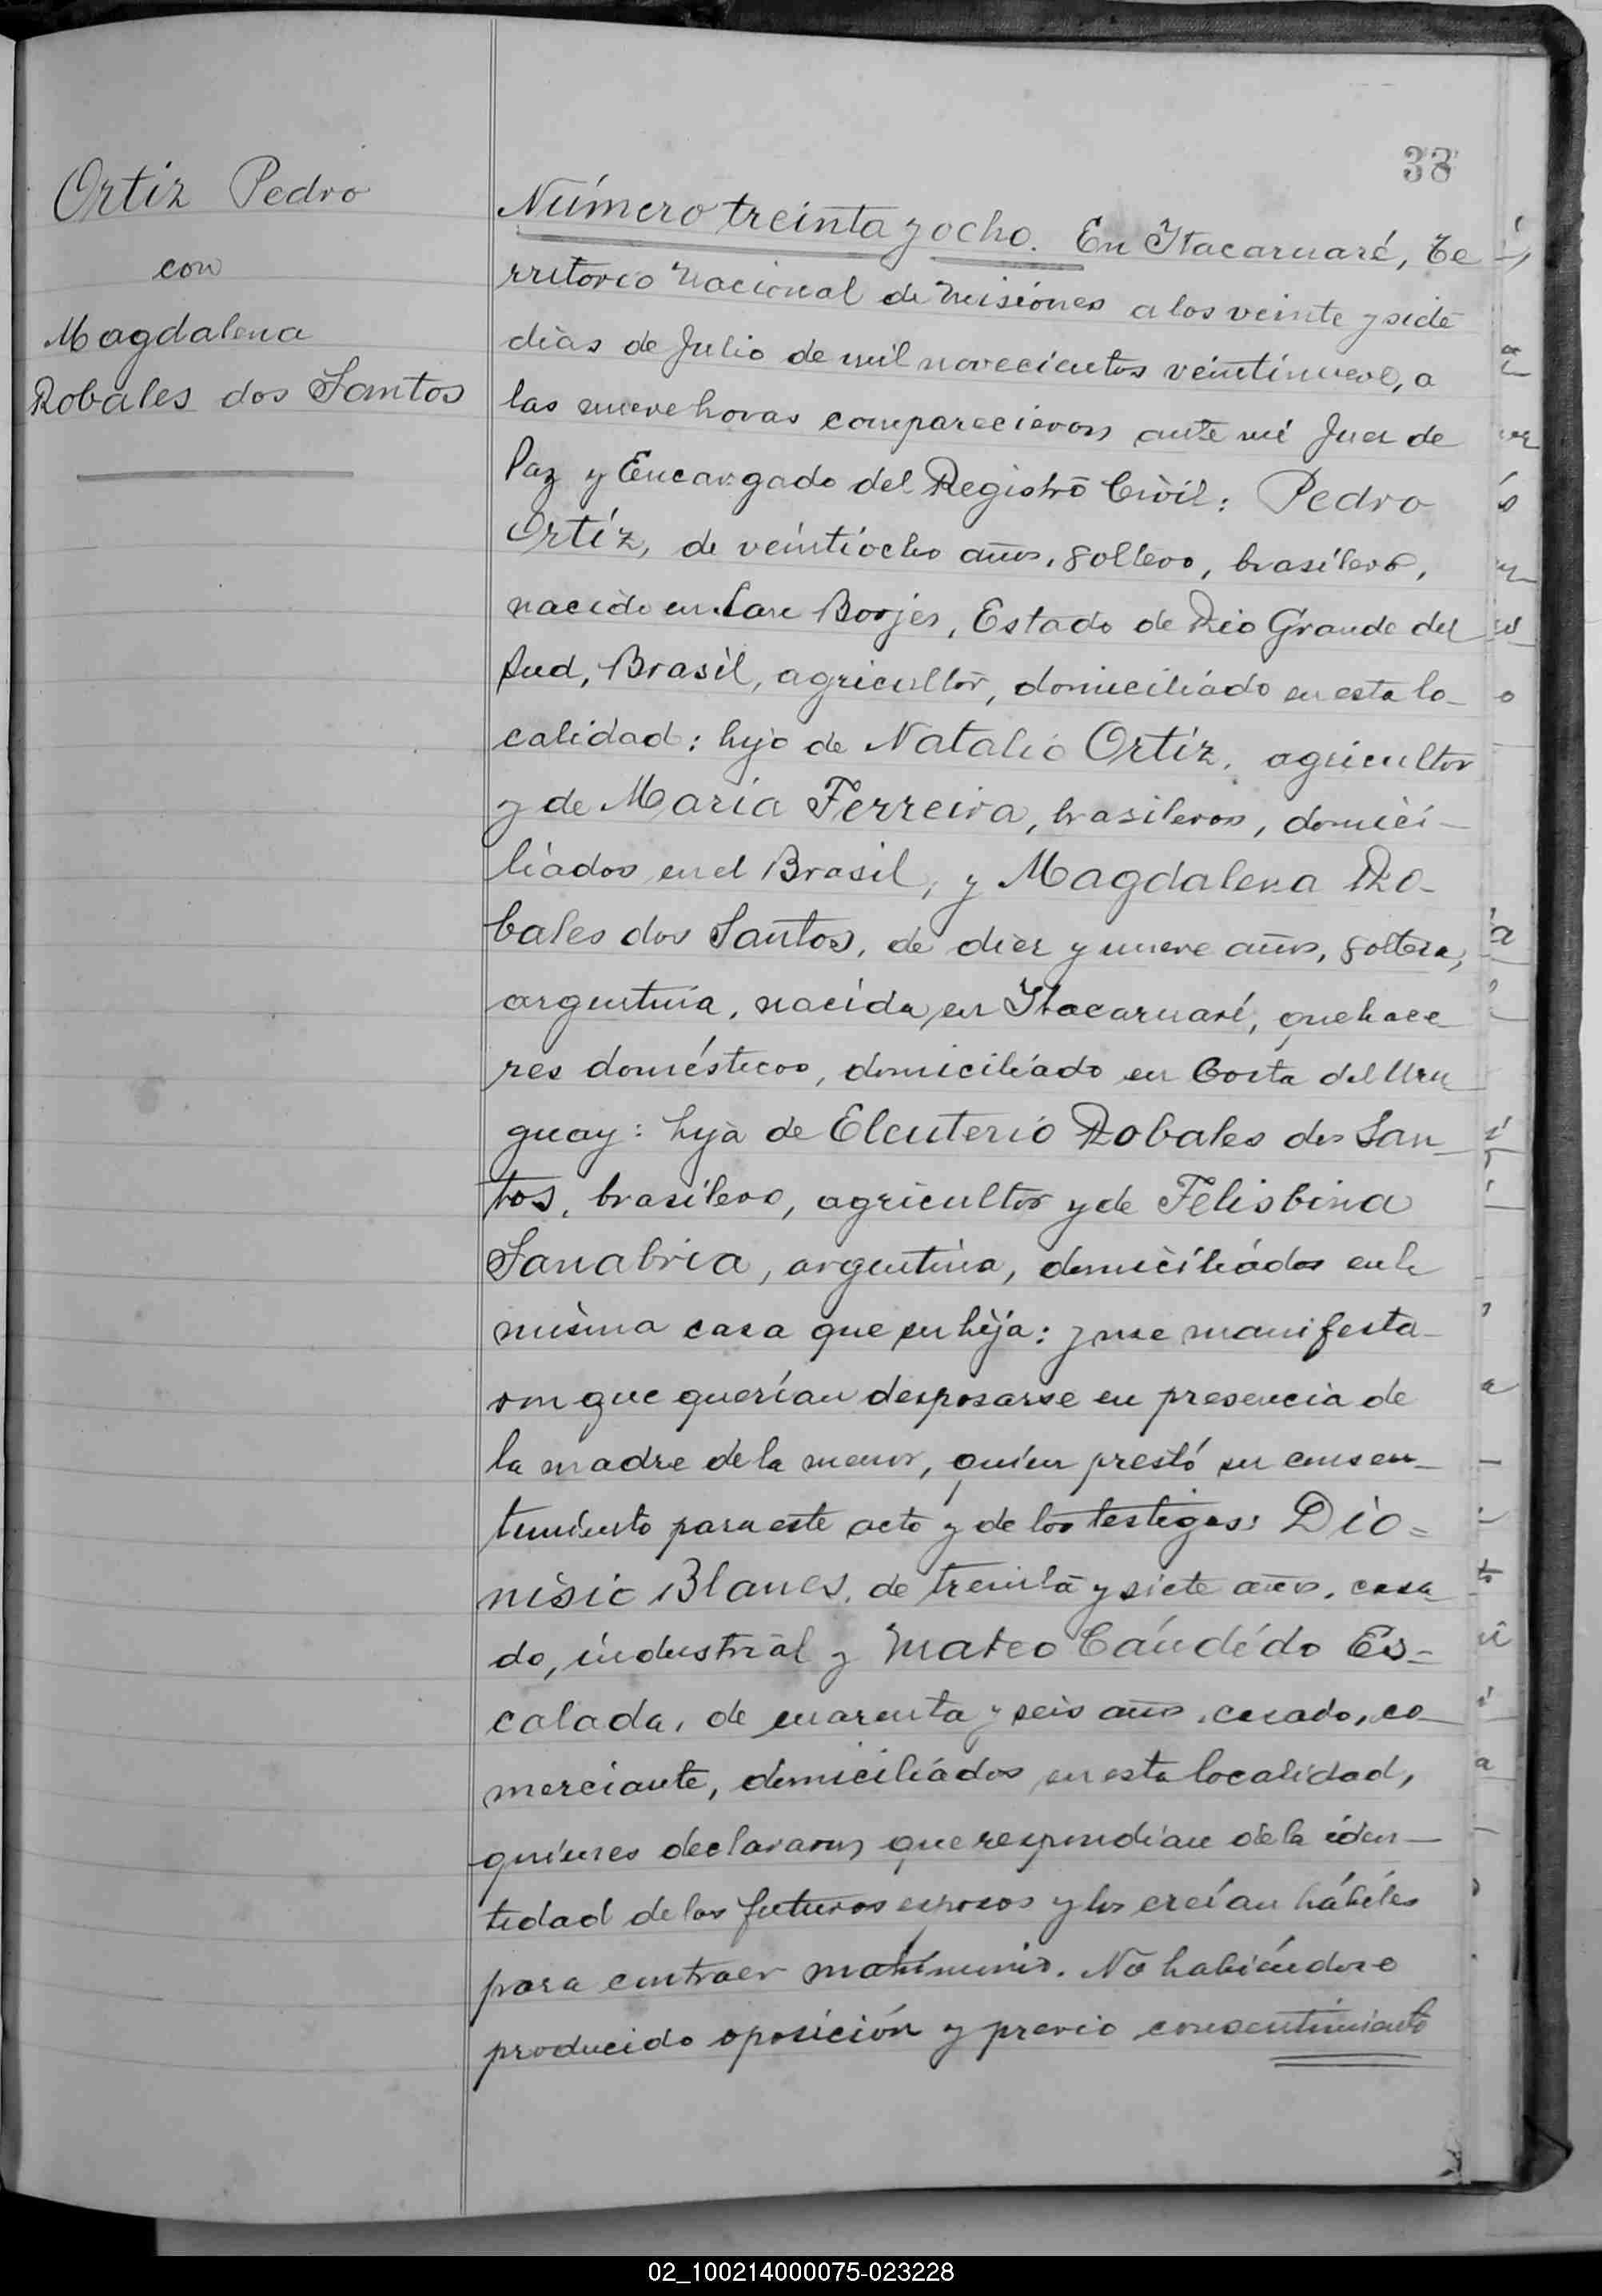 38
Ortiz Pedro
con
Magdalena
Robales dos Santos
Número treinta y ocho. En Itacaruaré, Te
rritorio Nacional de Misiones a los veinte y siete
días de Julio de mil novecientos veintinueve, a
las nueve horas comparecieron ante mí Juez de
Paz y Encargado del Registro Civil: Pedro
Ortíz, de veintiocho años, soltero, brasilero,
nacido en San Borjes, Estado de Rio Grande del
Sud, Brasil, agricultor, domiciliado en esta lo-
calidad: hijo de Natalio Ortiz, agricultor
y de María Ferreira, brasileros, domici-
liados en el Brasil, y Magdalena Ro-
bales dos Santos, de diez y nueve años, soltera,
argentina, nacida en Itacaruaré, quehace
res domésticos, domiciliado en Costa del Uru
guay: hija de Eleuterio Robales dos San-
tos, brasilero, agricultor y de Felisbina
Sanabria, argentina, domiciliados en la
misma casa que su hija: y me manifesta-
on que querían desposarse en presencia de
la madre de la menor, quíen prestó su consen-
timiento para este acto y de los testigos: Dio=
nisio Blanes, de treinta y siete años, casa
do, industrial y Mateo Cándido Es=
calada, de cuarenta y seis años, casado, co-
merciante, domiciliados en esta localidad,
quíenes declararon que respondían de la iden-
tidad de los futuros esposos y los creían hábiles
para contraer matrimonio. No habiéndose
producido oposición y previo consentimiento
02_100214000075-023228